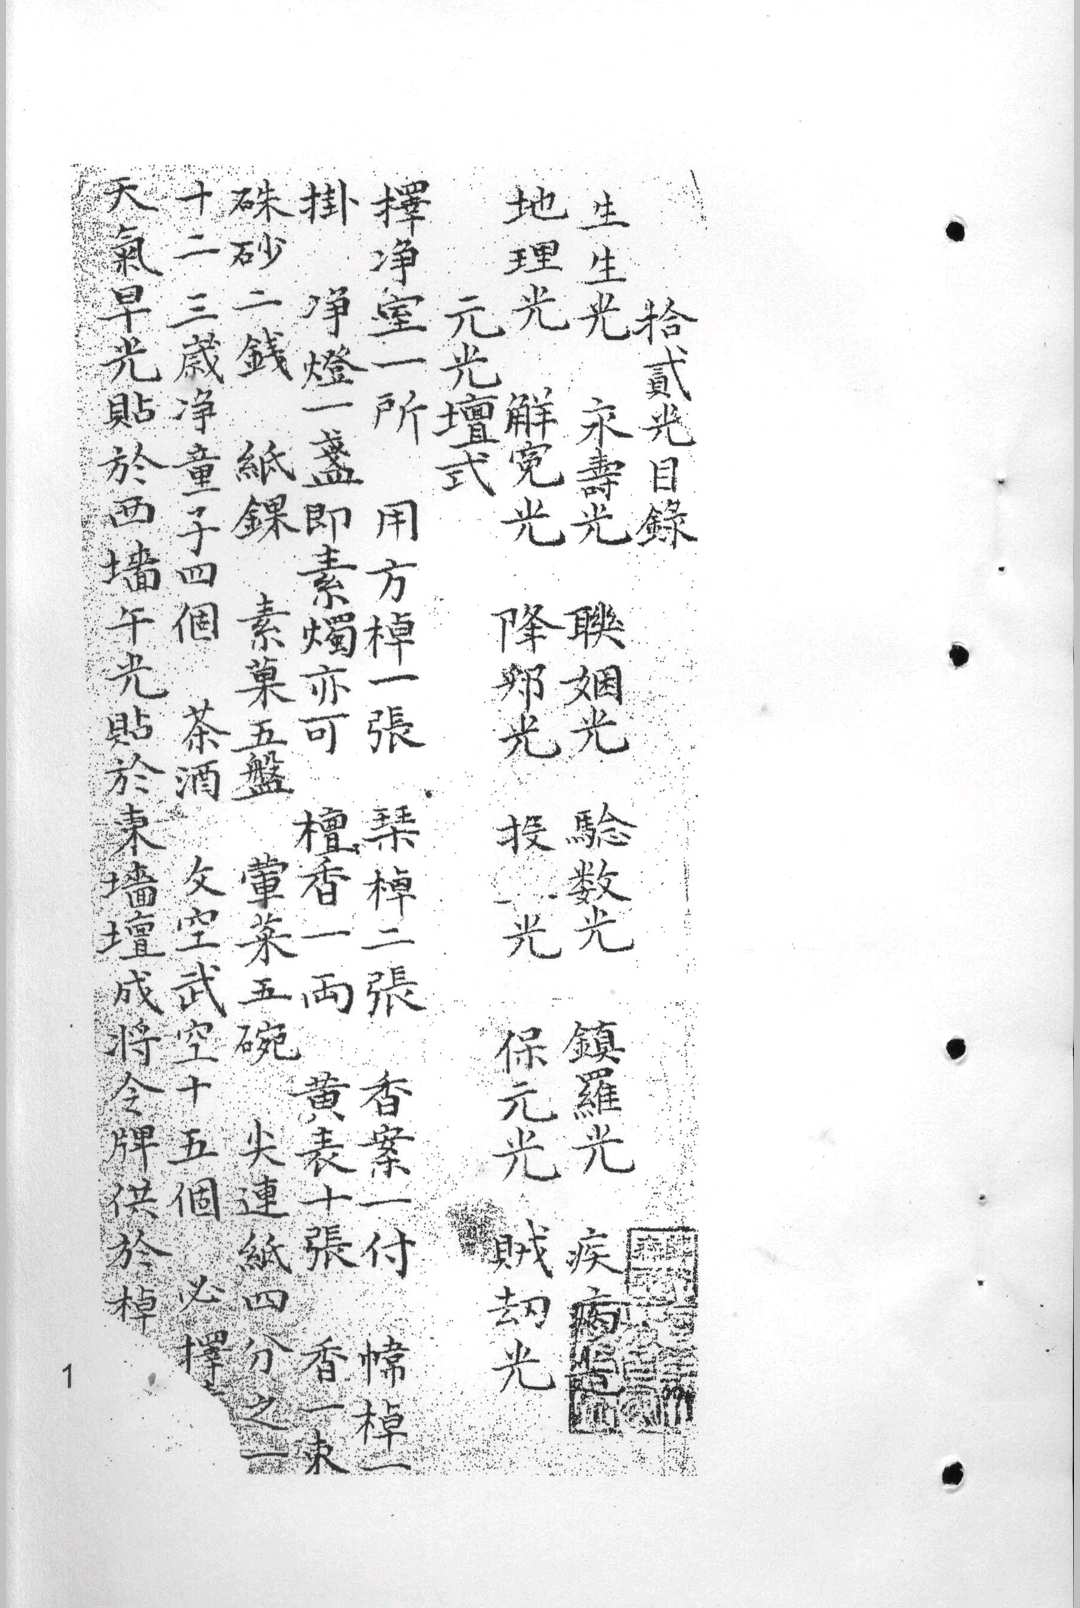 拾貳光目錄
生生光 永壽光 聯姻光 騐数光 鎮羅光 疾病光
地理光 解寃光 降邪光 投 光 保元光 賊刼光
元光壇式
擇净室一所 用方棹一張 琹棹二張 香案一付 幃棹一
掛 净燈一盞即素燭亦可 檀香一両 黄表十張 香一束
硃砂二錢 紙錁 素菓五盤 葷菜五碗 尖連紙四分之一
十二三歲净童子四個 茶酒 文空武空十五個 必擇
天氣早光貼於西墻午光貼於東墻壇成将令牌供於棹
1